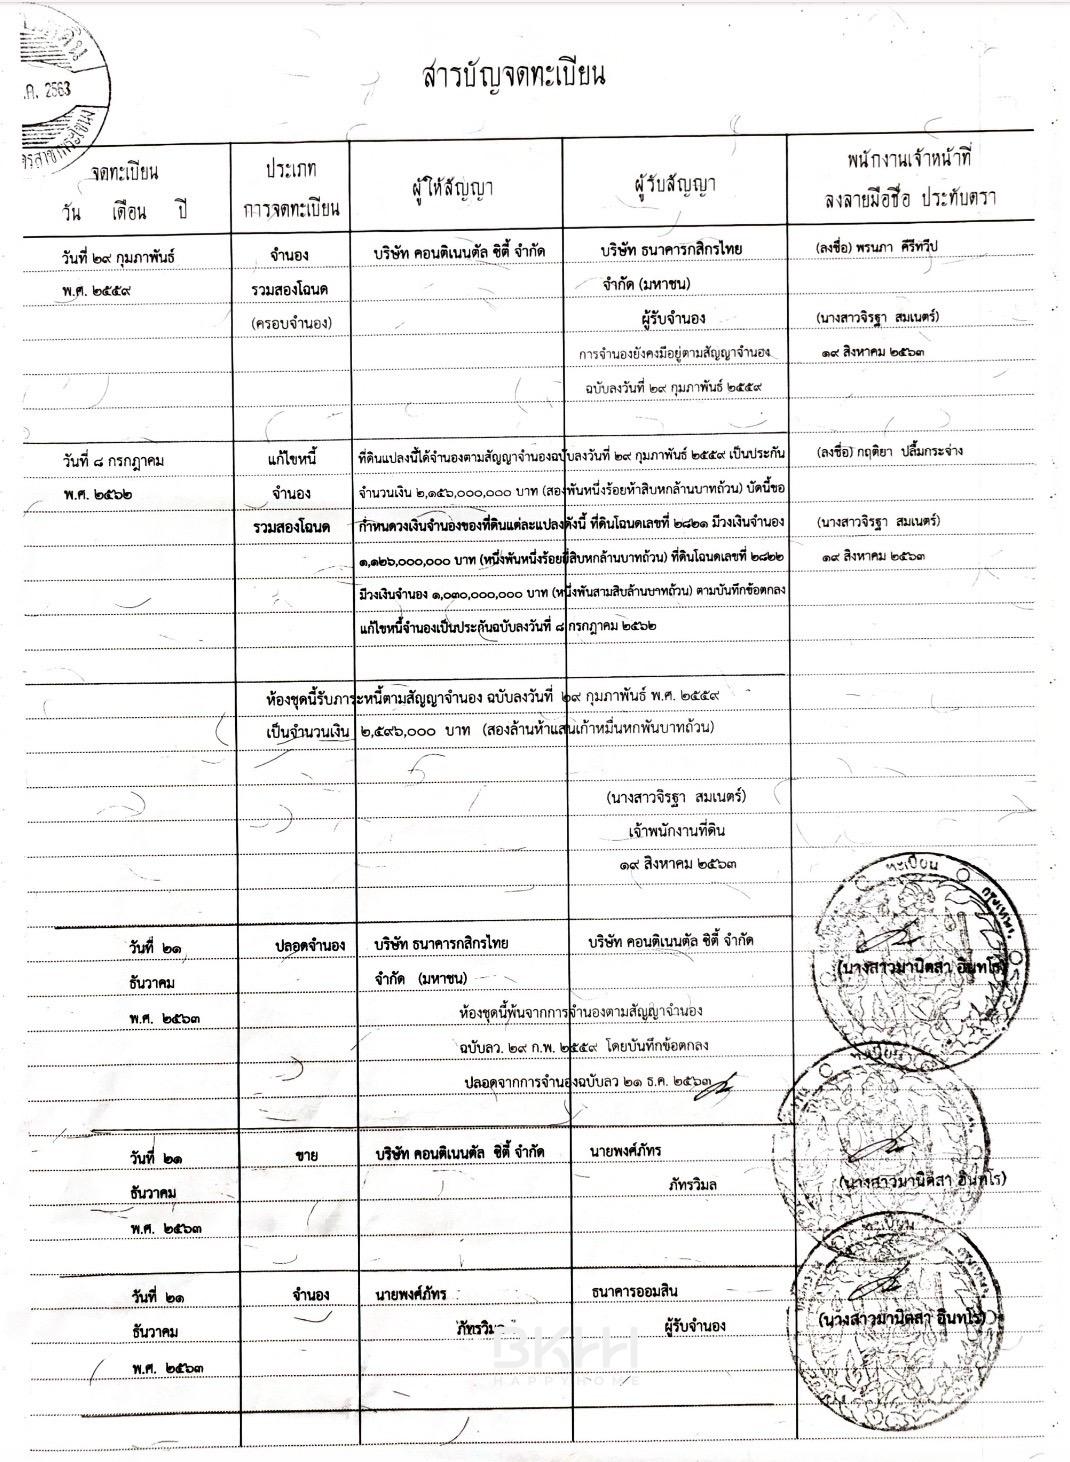 ค. 2563
สารบัญจดทะเบียน
จดทะเบียน
วัน เดือน ปี
ประเภท
การจดทะเบียน
ผู้ให้สัญญา
ผู้รับสัญญา
พนักงานเจ้าหน้าที่
ลงลายมือชื่อ ประทับตรา
วันที่ ๒๙ กุมภาพันธ์ จำนอง บริษัท คอนติเนนตัล ซิตี้ จำกัด บริษัท ธนาคารกสิกรไทย (ลงชื่อ) พรนภา คีรีทวีป
พ.ศ. ๒๕๕๙ รวมสองโฉนด จำกัด (มหาชน)
(ครอบจำนอง) ผู้รับจำนอง (นางสาวจิรฐา สมเนตร์)
การจำนองยังคงมีอยู่ตามสัญญาจำนอง ๑๙ สิงหาคม ๒๕๖๓
ฉบับลงวันที่ ๒๙ กุมภาพันธ์ ๒๕๕๙
วันที่ ๘ กรกฎาคม แก้ไขหนี้ ที่ดินแปลงนี้ได้จำนองตามสัญญาจำนองฉบับลงวันที่ ๒๙ กุมภาพันธ์ ๒๕๕๙ เป็นประกัน (ลงชื่อ) กฤติยา ปลื้มกระจ่าง
พ.ศ. ๒๕๖๒ จำนอง จำนวนเงิน ๒,๑๕๖,๐๐๐,๐๐๐ บาท (สองพันหนึ่งร้อยห้าสิบหกล้านบาทถ้วน) บัดนี้ขอ
รวมสองโฉนด กำหนดวงเงินจำนองของที่ดินแต่ละแปลงดังนี้ ที่ดินโฉนดเลขที่ ๒๘๒๑ มีวงเงินจำนอง (นางสาวจิรฐา สมเนตร์)
๑,๑๒๖,๐๐๐,๐๐๐ บาท (หนึ่งพันหนึ่งร้อยยี่สิบหกล้านบาทถ้วน) ที่ดินโฉนดเลขที่ ๒๘๒๒ ๑๙ สิงหาคม ๒๕๖๓
มีวงเงินจำนอง ๑,๐๓๐,๐๐๐,๐๐๐ บาท (หนึ่งพันสามสิบล้านบาทถ้วน) ตามบันทึกข้อตกลง
แก้ไขหนี้จำนองเป็นประกันฉบับลงวันที่ ๘ กรกฎาคม ๒๕๖๒
ห้องชุดนี้รับภาระหนี้ตามสัญญาจำนอง ฉบับลงวันที่ ๒๙ กุมภาพันธ์ พ.ศ. ๒๕๕๙
เป็นจำนวนเงิน ๒,๕๙๖,๐๐๐ บาท (สองล้านห้าแสนเก้าหมื่นหกพันบาทถ้วน)
(นางสาวจิรฐา สมเนตร์)
เจ้าพนักงานที่ดิน
๑๙ สิงหาคม ๒๕๖๓
ทะเบียน
วันที่ ๒๑ ปลอดจำนอง บริษัท ธนาคารกสิกรไทย บริษัท คอนติเนนตัล ซิตี้ จำกัด
ธันวาคม จำกัด (มหาชน) (นางสาวมานิตสา อินทโร)
พ.ศ. ๒๕๖๓ ห้องชุดนี้พ้นจากการจำนองตามสัญญาจำนอง
ฉบับลว. ๒๙ ก.พ. ๒๕๕๙ โดยบันทึกข้อตกลง
ปลอดจากการจำนองฉบับลว ๒๑ ธ.ค. ๒๕๖๓
วันที่ ๒๑ ขาย บริษัท คอนติเนนตัล ซิตี้ จำกัด นายพงศ์ภัทร
ธันวาคม ภัทรวิมล (นางสาวมานิตสา อินทโร)
พ.ศ. ๒๕๖๓
วันที่ ๒๑ จำนอง นายพงศ์ภัทร ธนาคารออมสิน
ธันวาคม ภัทรวิมล ผู้รับจำนอง (นางสาวมานิตสา อินทโร)
พ.ศ. ๒๕๖๓
BKHH
HAPPY HOME